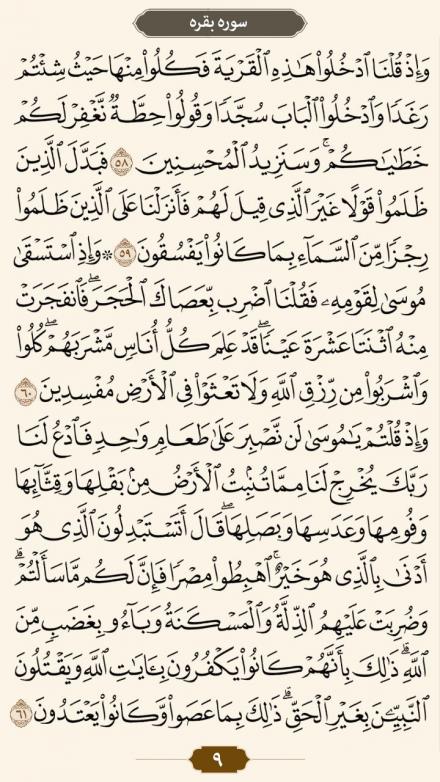 سوره بقره
وَإِذۡ قُلۡنَا ٱدۡخُلُواْ هَٰذِهِ ٱلۡقَرۡيَةَ فَكُلُواْ مِنۡهَا حَيۡثُ شِئۡتُمۡ
رَغَدٗا وَٱدۡخُلُواْ ٱلۡبَابَ سُجَّدٗا وَقُولُواْ حِطَّةٞ نَّغۡفِرۡ لَكُمۡ
خَطَٰيَٰكُمۡۚ وَسَنَزِيدُ ٱلۡمُحۡسِنِينَ ٥٨ فَبَدَّلَ ٱلَّذِينَ
ظَلَمُواْ قَوۡلًا غَيۡرَ ٱلَّذِي قِيلَ لَهُمۡ فَأَنزَلۡنَا عَلَى ٱلَّذِينَ ظَلَمُواْ
رِجۡزٗا مِّنَ ٱلسَّمَآءِ بِمَا كَانُواْ يَفۡسُقُونَ ٥٩ ۞ وَإِذِ ٱسۡتَسۡقَىٰ
مُوسَىٰ لِقَوۡمِهِۦ فَقُلۡنَا ٱضۡرِب بِّعَصَاكَ ٱلۡحَجَرَۖ فَٱنفَجَرَتۡ
مِنۡهُ ٱثۡنَتَا عَشۡرَةَ عَيۡنٗاۖ قَدۡ عَلِمَ كُلُّ أُنَاسٖ مَّشۡرَبَهُمۡۖ كُلُواْ
وَٱشۡرَبُواْ مِن رِّزۡقِ ٱللَّهِ وَلَا تَعۡثَوۡاْ فِي ٱلۡأَرۡضِ مُفۡسِدِينَ ٦٠
وَإِذۡ قُلۡتُمۡ يَٰمُوسَىٰ لَن نَّصۡبِرَ عَلَىٰ طَعَامٖ وَٰحِدٖ فَٱدۡعُ لَنَا
رَبَّكَ يُخۡرِجۡ لَنَا مِمَّا تُنۢبِتُ ٱلۡأَرۡضُ مِنۢ بَقۡلِهَا وَقِثَّآئِهَا
وَفُومِهَا وَعَدَسِهَا وَبَصَلِهَاۖ قَالَ أَتَسۡتَبۡدِلُونَ ٱلَّذِي هُوَ
أَدۡنَىٰ بِٱلَّذِي هُوَ خَيۡرٌۚ ٱهۡبِطُواْ مِصۡرٗا فَإِنَّ لَكُم مَّا سَأَلۡتُمۡۗ
وَضُرِبَتۡ عَلَيۡهِمُ ٱلذِّلَّةُ وَٱلۡمَسۡكَنَةُ وَبَآءُو بِغَضَبٖ مِّنَ
ٱللَّهِۗ ذَٰلِكَ بِأَنَّهُمۡ كَانُواْ يَكۡفُرُونَ بِـَٔايَٰتِ ٱللَّهِ وَيَقۡتُلُونَ
ٱلنَّبِيِّـۧنَ بِغَيۡرِ ٱلۡحَقِّۗ ذَٰلِكَ بِمَا عَصَواْ وَّكَانُواْ يَعۡتَدُونَ ٦١
٩